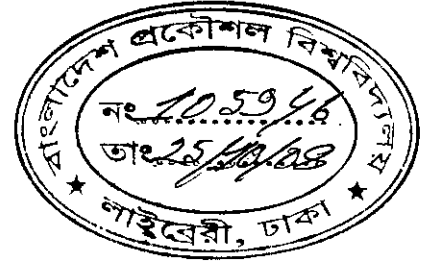 বাংলাদেশ প্রকৌশল বিশ্ববিদ্যালয়
নং 105946
তাং
লাইব্রেরী, ঢাকা